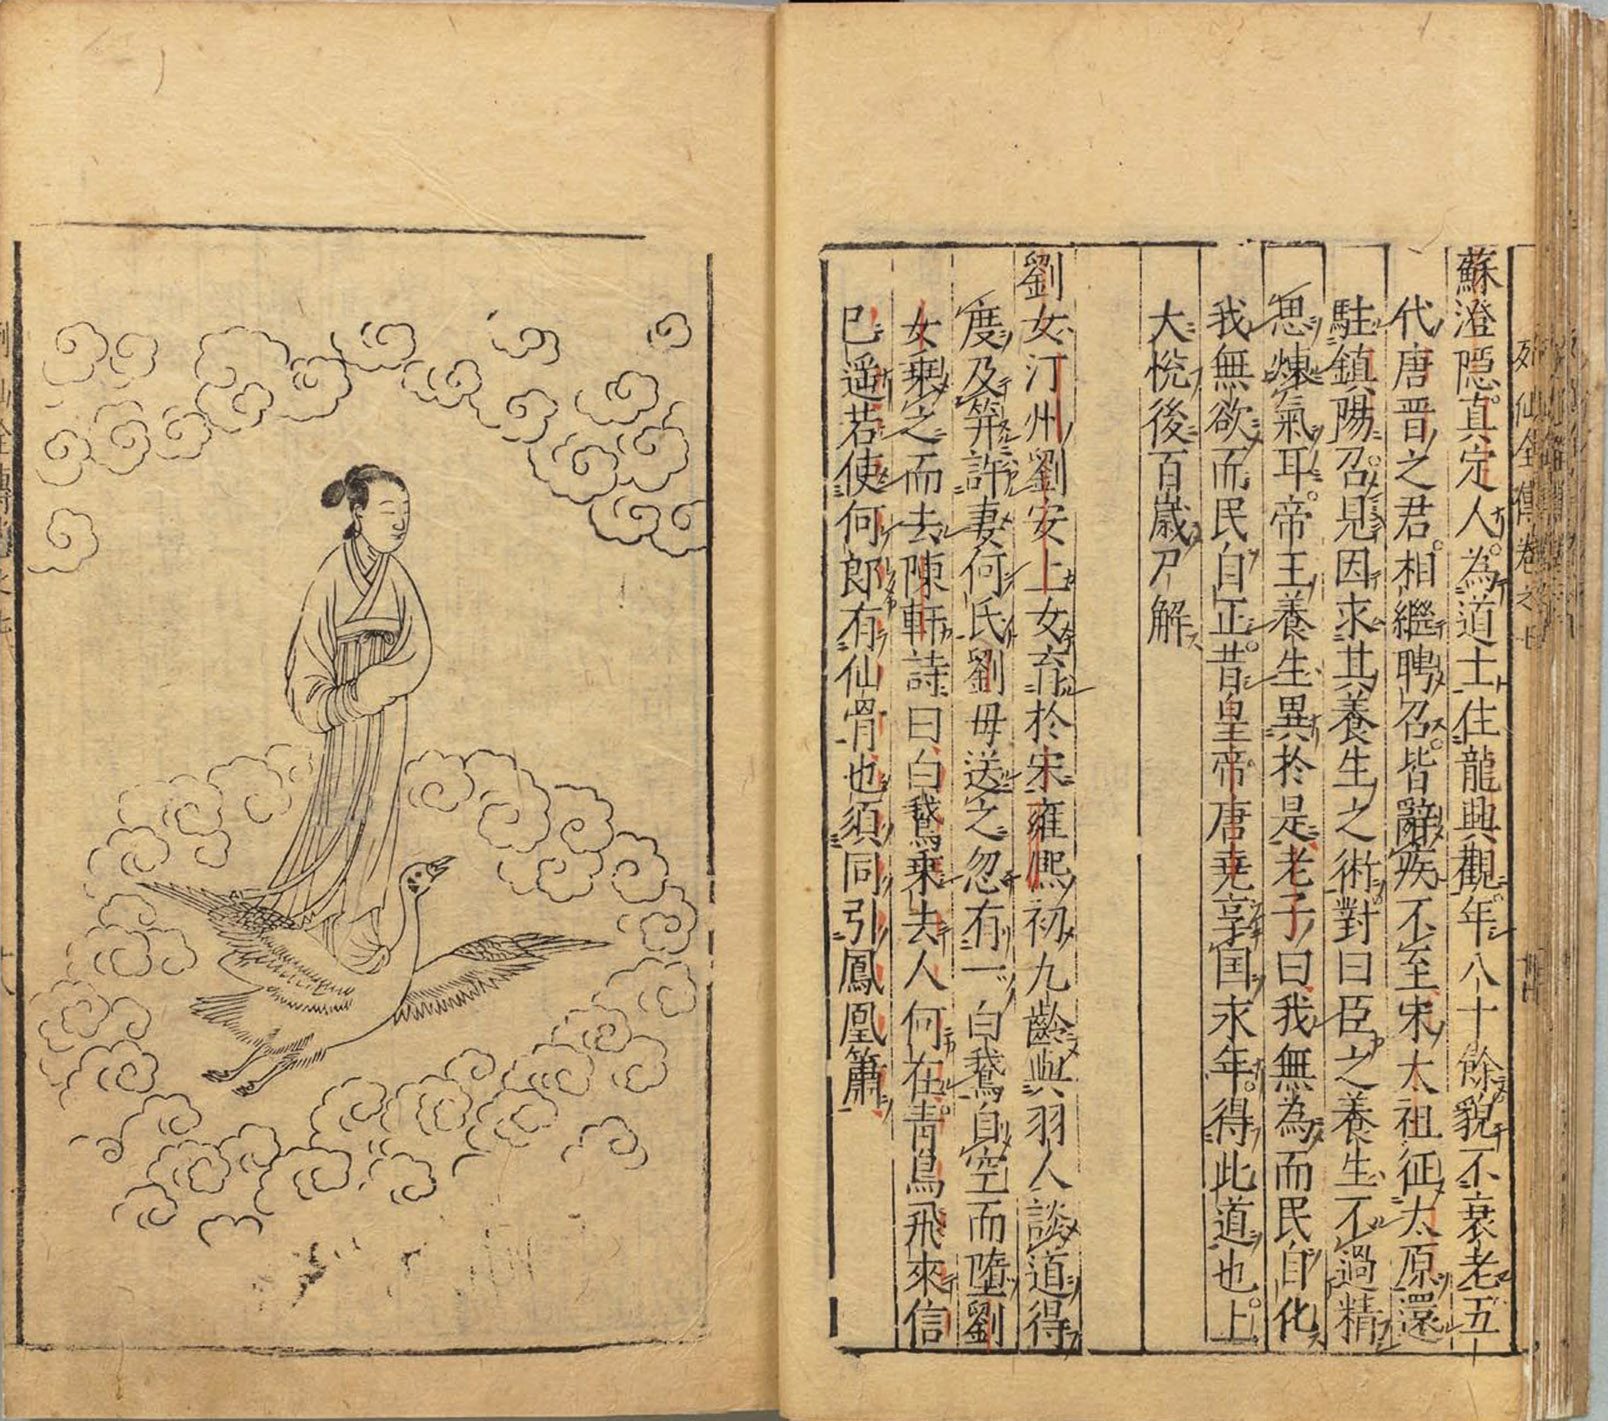 蘇澄隠真定人為道士住龍興觀年八十餘貌不衰老五
代唐晋之君相繼聘召皆辭疾不至宋太祖征太原還
駐鎮陽召見因求其養生之術對曰臣之養生不過精
思煉氣耳帝王養生異於是老子曰我無為而民自化
我無欲而民自正昔皇帝唐堯享囯永年得此道也上
大悅後百歲尸解
劉女汀州劉安上女育於宋雍熈初九齡與羽人談道得
度及笄許妻何氏劉母送之忽有一白鵝自空而墮劉
女乘之而去陳軒詩曰白鵝乘去人何在青鳥飛來信
已遥若使何郎有仙骨也須同引鳳凰簫